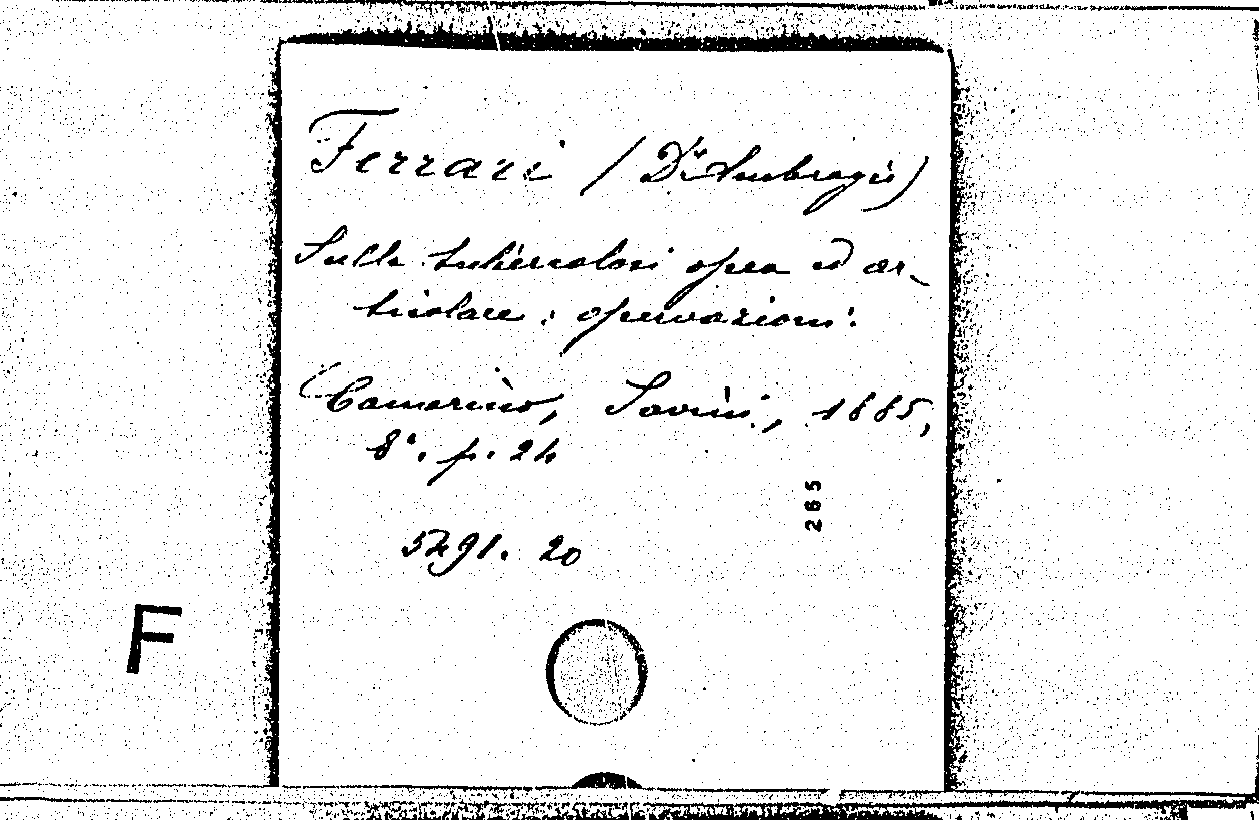 Ferrari (Dr Ambrogio)
Sulla tubercolosi ossea ed ar-
ticolare: osservazioni.
Camerino, Savini, 1885,
8°. p. 24
5491. 20
265
F